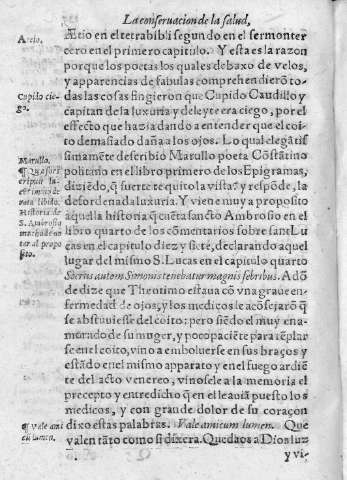 La conseruacion de la salud,
Aecio.
Ætio en el tetrabibli segundo en el sermon ter
cero en el primero capitulo. Y esta es la razon
porque los poetas los quales debaxo de velos,
y apparencias de fabulas comprehendierō to-
Cupido cie-
go.
das las cosas fingieron que Cupido Caudillo y
capitan de la luxuria y deleyte era ciego, por el
effecto que hazia dando a entender que el coi-
to demasiado daña a los ojos. Lo qual elegātis
simamēte descriuio Marullo poeta Cōstātino
Marullo.
politano en el libro primero de los Epigramas,
diziēdo, q̃ suerte te quito la vista? y respōde, la
desordenada luxuria. Y viene muy a proposito
Historia de
S. Ambrosio
aquella historia q̃ cuēta sancto Ambrosio en el
libro quarto de los comētarios sobre sant Lu
cas en el capitulo diez y siete, declarando aquel
lugar del mismo S. Lucas en el capitulo quarto
Socrus autem Simonis tenebatur magnis febribus. Adō
de dize que Theotimo estaua cō vna graue en-
fermedad de ojos, y los medicos le acōsejarō q̃
se abstuuiesse del coito: pero siēdo el muy ena-
morado de su muger, y poco paciēte para tēplar
se en el coito, vino a emboluerse en sus braços y
estādo en el mismo apparato y en el fuego ardiē
te del acto venereo, vinosele a la memoria el
precepto y entredicho q̃ en ello auiā puesto los
medicos, y con grande dolor de su coraçon
¶ vale ami
cū lumen.
dixo estas palabras. Vale amicum lumen. Que
valen tāto como si dixera. Quedaos a Dios luz
y vi-